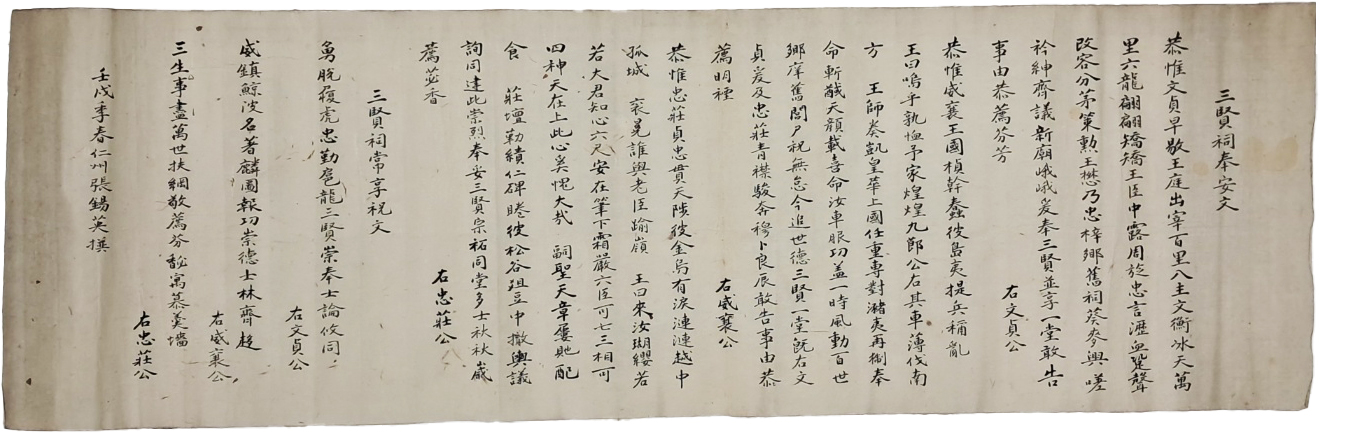 三賢祠奉安文
恭惟文貞早敭王庭出宰百里八主文衡冰天萬
里六龍翩翩矯矯王臣中露周旋忠言瀝血跫聲
改容分茅策勳王懋乃忠梓鄉舊祠葵麥興嗟
衿紳齊議新廟峨峨爰奉三賢並享一堂敢告
事由恭薦芬芳
右文貞公
恭惟威襄王國楨幹蠢彼島夷提兵稱亂
王曰嗚乎孰恤予家煌煌九郞公右其車薄伐南
方 王師奏凱皇華上國任重專對瀦夷再捌奉
命斬馘天顔載喜命汝車服功盖一時風動百世
鄉庠舊閣尸祝無怠今追世德三賢一堂旣右文
貞爰及忠莊青襟駿奔穆卜良辰敢告事由恭
薦明禋
右威襄公
恭惟忠莊貞忠貫天陟彼金烏有淚漣漣越中
孤城 袞冕誰與老臣踰嶺 王曰來汝瑚纓若
若大君知心六尺安在筆下霜嚴六臣可七三相可
四神天在上此心奚愧大哉 嗣聖天章屢貤配
食 莊壇勒績仁碑睠彼松谷俎豆中撤輿議
詢同建此崇烈奉安三賢宗祏同堂多士秋秋歲
薦苾香
右忠莊公
三賢祠常享祝文
勇脫履虎忠勤扈龍三賢崇奉士論攸同
右文貞公
威鎮鯨波名著麟圖報功崇德士林齊趍
右威襄公
三生事盡萬世扶綱敬薦芬馥寓慕羹墻
右忠莊公
壬戌季春仁州張錫英撰